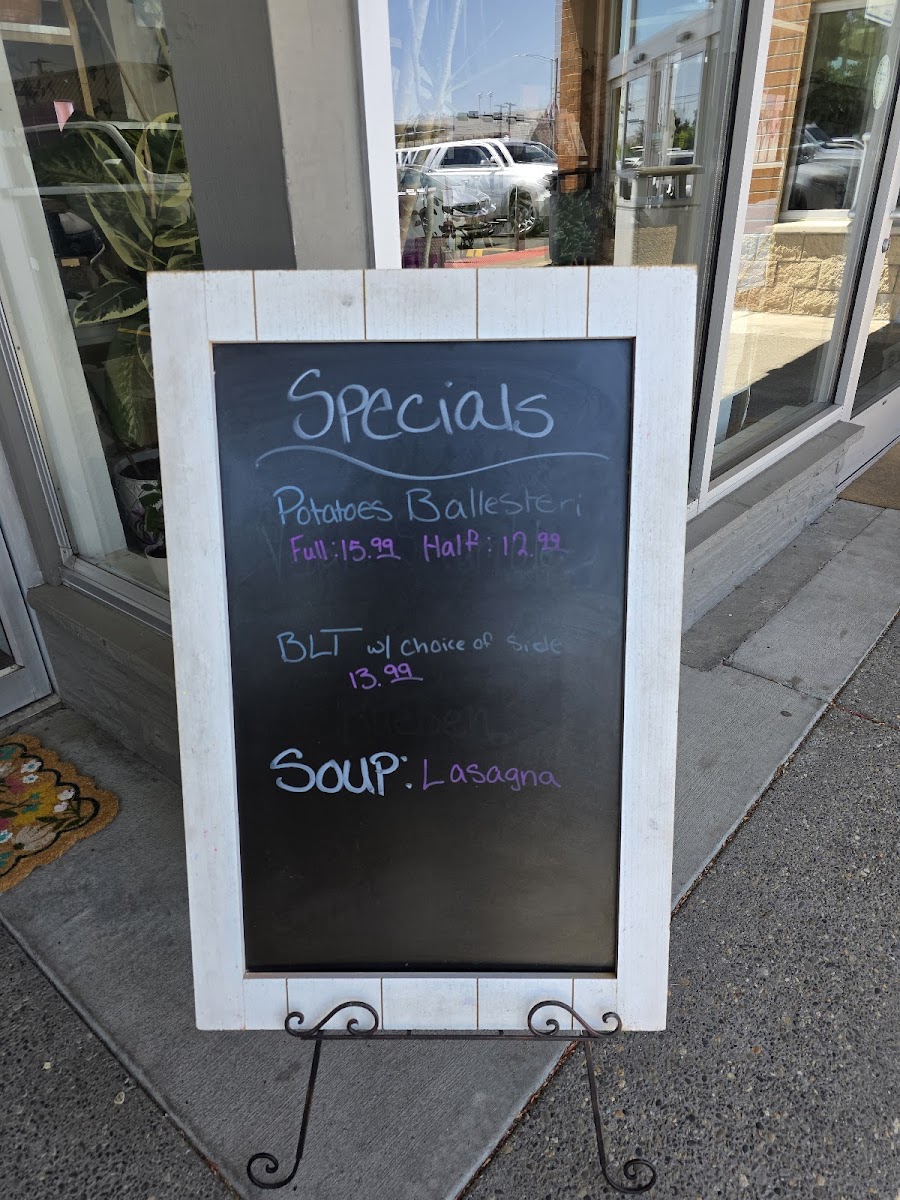 Specials
Potatoes Ballesteri
Full: 15.99 Half: 12.99
BLT w/ choice of side
13.99
Soup: Lasagna